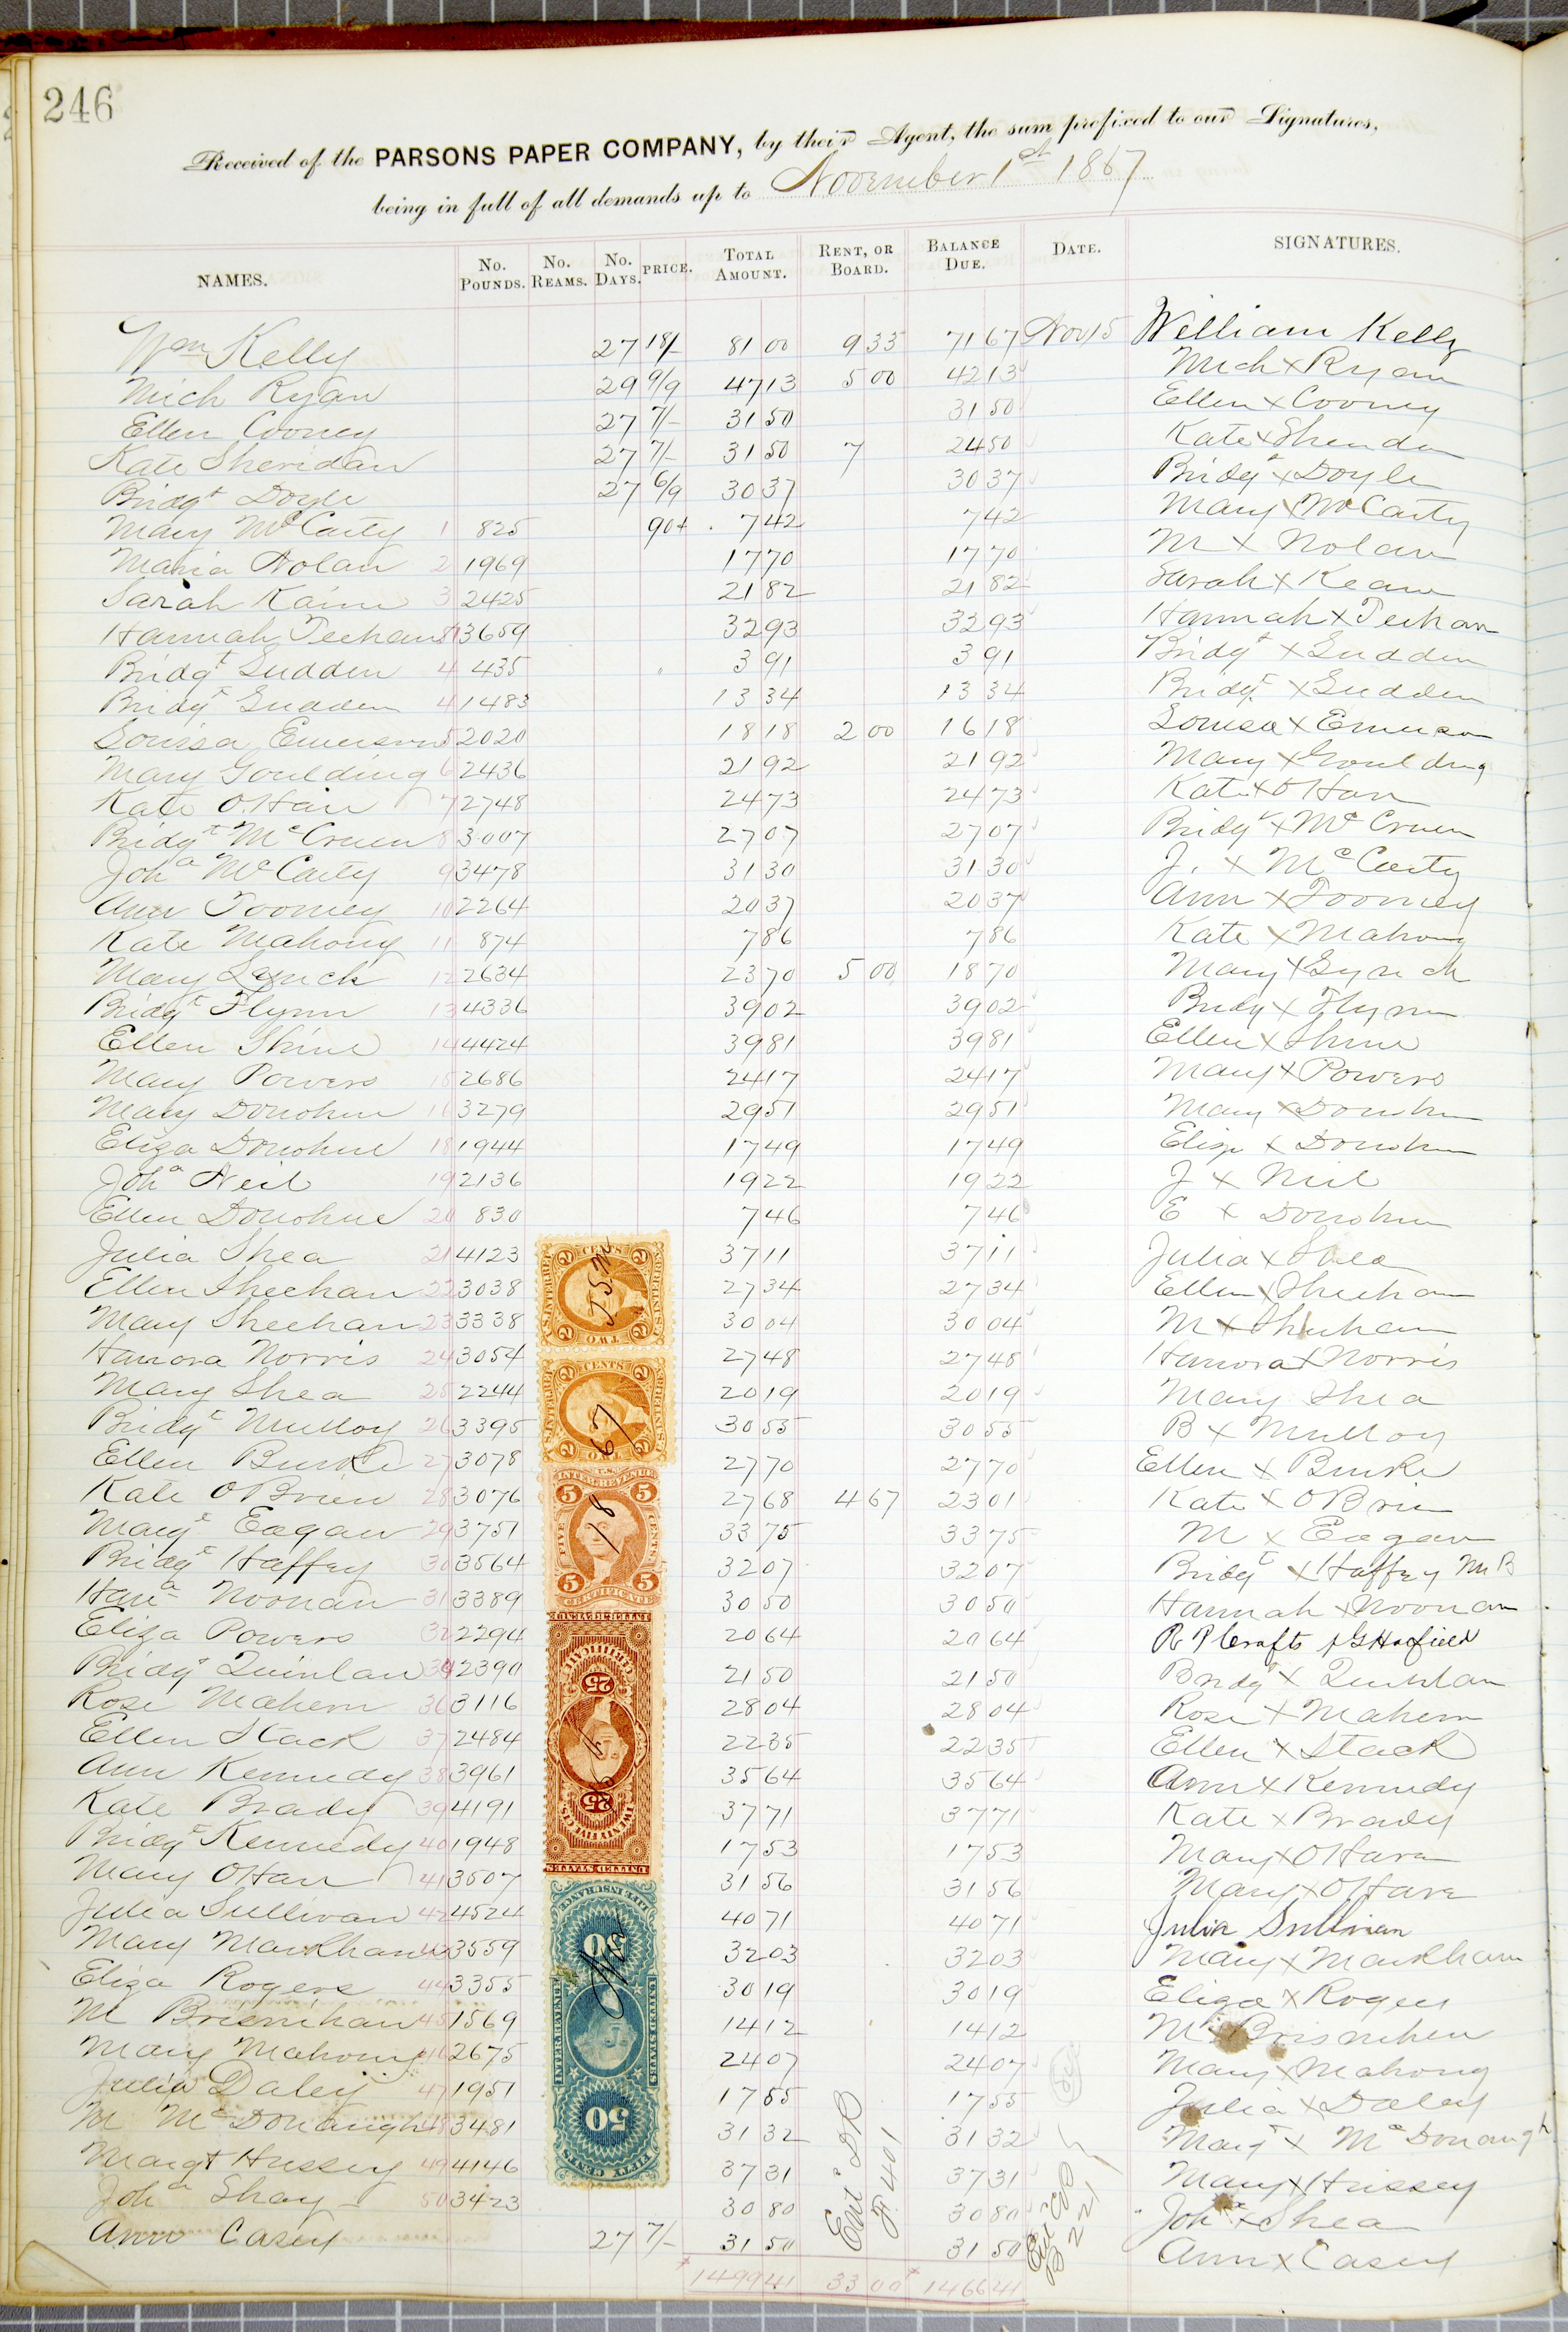 246
Received of the PARSONS PAPER COMPANY, by their Agent, the sum prefixed to our Signatures,
being in full of all demands up to November 1st 1867
NAMES. No. POUNDS. No. REAMS. No. DAYS. PRICE. TOTAL AMOUNT. RENT, OR BOARD. BALANCE DUE. DATE. SIGNATURES.
Wm Kelly 27 18/- 81 00 9 33 71 67 Nov 15 William Kelly
Mich Ryan 29 9/9 47 13 5 00 42 13 Mich x Ryan
Ellen Cooney 27 7/- 31 50 31 50 Ellen x Cooney
Kate Sheridan 27 7/- 31 50 7 24 50 Kate x Sheridan
Bridgt Doyle 27 6/9 30 37 30 37 Bridgt x Doyle
Mary McCarty 1 825 90+ 7 42 7 42 Mary x McCarty
Maria Nolan 2 1969 17 70 17 70 M x Nolan
Sarah Kain 3 2425 21 82 21 82 Sarah x Kean
Hannah Teehan 3659 32 93 32 93 Hannah x Teehan
Bridgt Sudden 4 435 " 3 91 3 91 Bridgt x Sudden
Bridgt Sudden 4 1483 13 34 13 34 Bridgt x Sudden
Louisa Emerson 5 2020 18 18 2 00 16 18 Louisa x Emerson
Mary Goulding 6 2436 21 92 21 92 Mary x Goulding
Kate O.Hair 7 2748 24 73 24 73 Kate x O Hair
Bridgt McCruen 8 3007 27 07 27 07 Bridgt x McCruen
Joha McCarty 9 3478 31 30 31 30 J. x McCarty
Ann Toomey 10 2264 20 37 20 37 Ann x Toomey
Kate Mahony 11 874 7 86 7 86 Kate x Mahony
Mary Lynch 12 2634 23 70 5 00 18 70 Mary x Lynch
Bridgt Flynn 13 4336 39 02 39 02 Bridgt x Flynn
Ellen Shine 14 4424 39 81 39 81 Ellen x Shine
Mary Powers 15 2686 24 17 24 17 Mary x Powers
Mary Donohue 16 3279 29 51 29 51 Mary x Donohue
Eliza Donohue 18 1944 17 49 17 49 Eliza x Donohue
Joha Neil 19 2136 19 22 19 22 J x Neil
Ellen Donohue 20 830 7 46 7 46 E x Donohue
Julia Shea 21 4123 37 11 37 11 Julia x Shea
Ellen Sheehan 22 3038 27 34 27 34 Ellen x Sheehan
Mary Sheehan 23 3338 30 04 30 04 M x Sheehan
Hanora Norris 24 3054 27 48 27 48 Hanora x Norris
Mary Shea 25 2244 20 19 20 19 Mary Shea
Bridgt Mulloy 26 3395 30 55 30 55 B x Mulloy
Ellen Burke 27 3078 27 70 27 70 Ellen x Burke
Kate OBrien 28 3076 27 68 4 67 23 01 Kate x OBrien
Margt Eagan 29 3751 33 75 33 75 M x Eagan
Bridgt Haffey 30 3564 32 07 32 07 Bridgt x Haffey M B
Hana Noonan 31 3389 30 50 30 50 Hannah x Noonan
Eliza Powers 32 2294 20 64 20 64 R P Crafts
Bridgt Quinlan 2390 21 50 21 50 Bridgt x Quinlan
Rose Mahern 36 3116 28 04 28 04 Rose x Mahern
Ellen Stack 37 2484 22 35 22 35 Ellen x Stack
Ann Kennedy 38 3961 35 64 35 64 Ann x Kennedy
Kate Brady 39 4191 37 71 37 71 Kate x Brady
Bridgt Kennedy 40 1948 17 53 17 53 Mary x OHara
Mary OHan 41 3507 31 56 31 56 Mary x OHara
Julia Sullivan 42 4524 40 71 40 71 Julia Sullivan
Mary Markham 43 3559 32 03 32 03 Mary x Markham
Eliza Rogers 44 3355 30 19 30 19 Eliza x Rogers
M Brisnihan 45 1569 14 12 14 12 M x Brisnihan
Mary Mahony 46 2675 24 07 24 07 Mary x Mahony
Julia Daley 47 1951 17 55 17 55 Julia x Daley
M McDonaugh 48 3481 31 32 31 32 Margt x McDonaugh
Margt Hussey 49 4146 37 31 37 31 Mary x Hussey
Joha Shay 50 3423 30 80 30 80 Joha x Shea
Ann Casey 27 7/- 31 50 31 50 Ann x Casey
1499 41 33 00 1466 41
Entd DB
F 401
Entd CB
B 221
U.S. INTER. REVENUE
2 CENTS 2
TWO
67
U.S. INTER. REVENUE
5 5
FIVE CENTS
CERTIFICATE
18
INTER. REVENUE
CERTIFICATE
25
TWENTY FIVE CTS.
UNITED STATES
LIFE INSURANCE
50
Nov
INTER. REVENUE
UNITED STATES
50
FIFTY CENTS